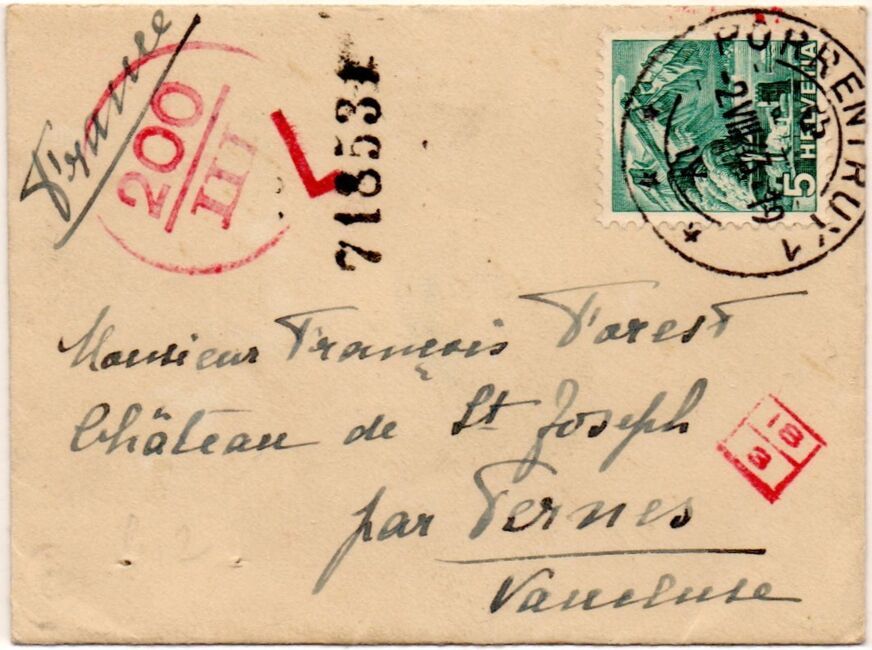 France
200
III
718531
5
HELVETIA
PORRENTRUY 1
Monsieur François Forest
Château de St Joseph
par Pernes
Vaucluse
18
3